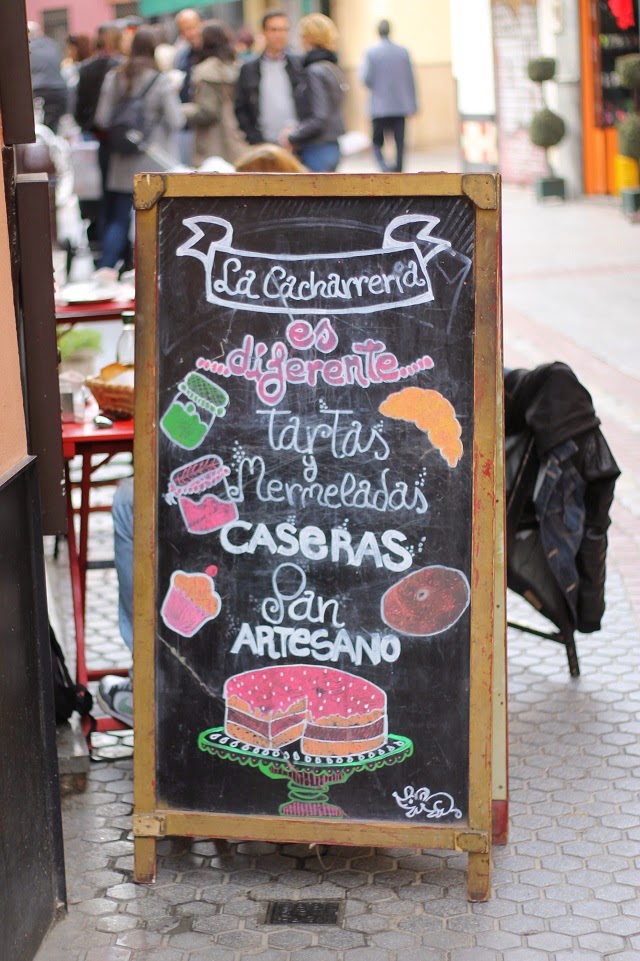 La Cacharreria
es
diferente
Tartas
y
Mermeladas
CASERAS
Pan
ARTESANO